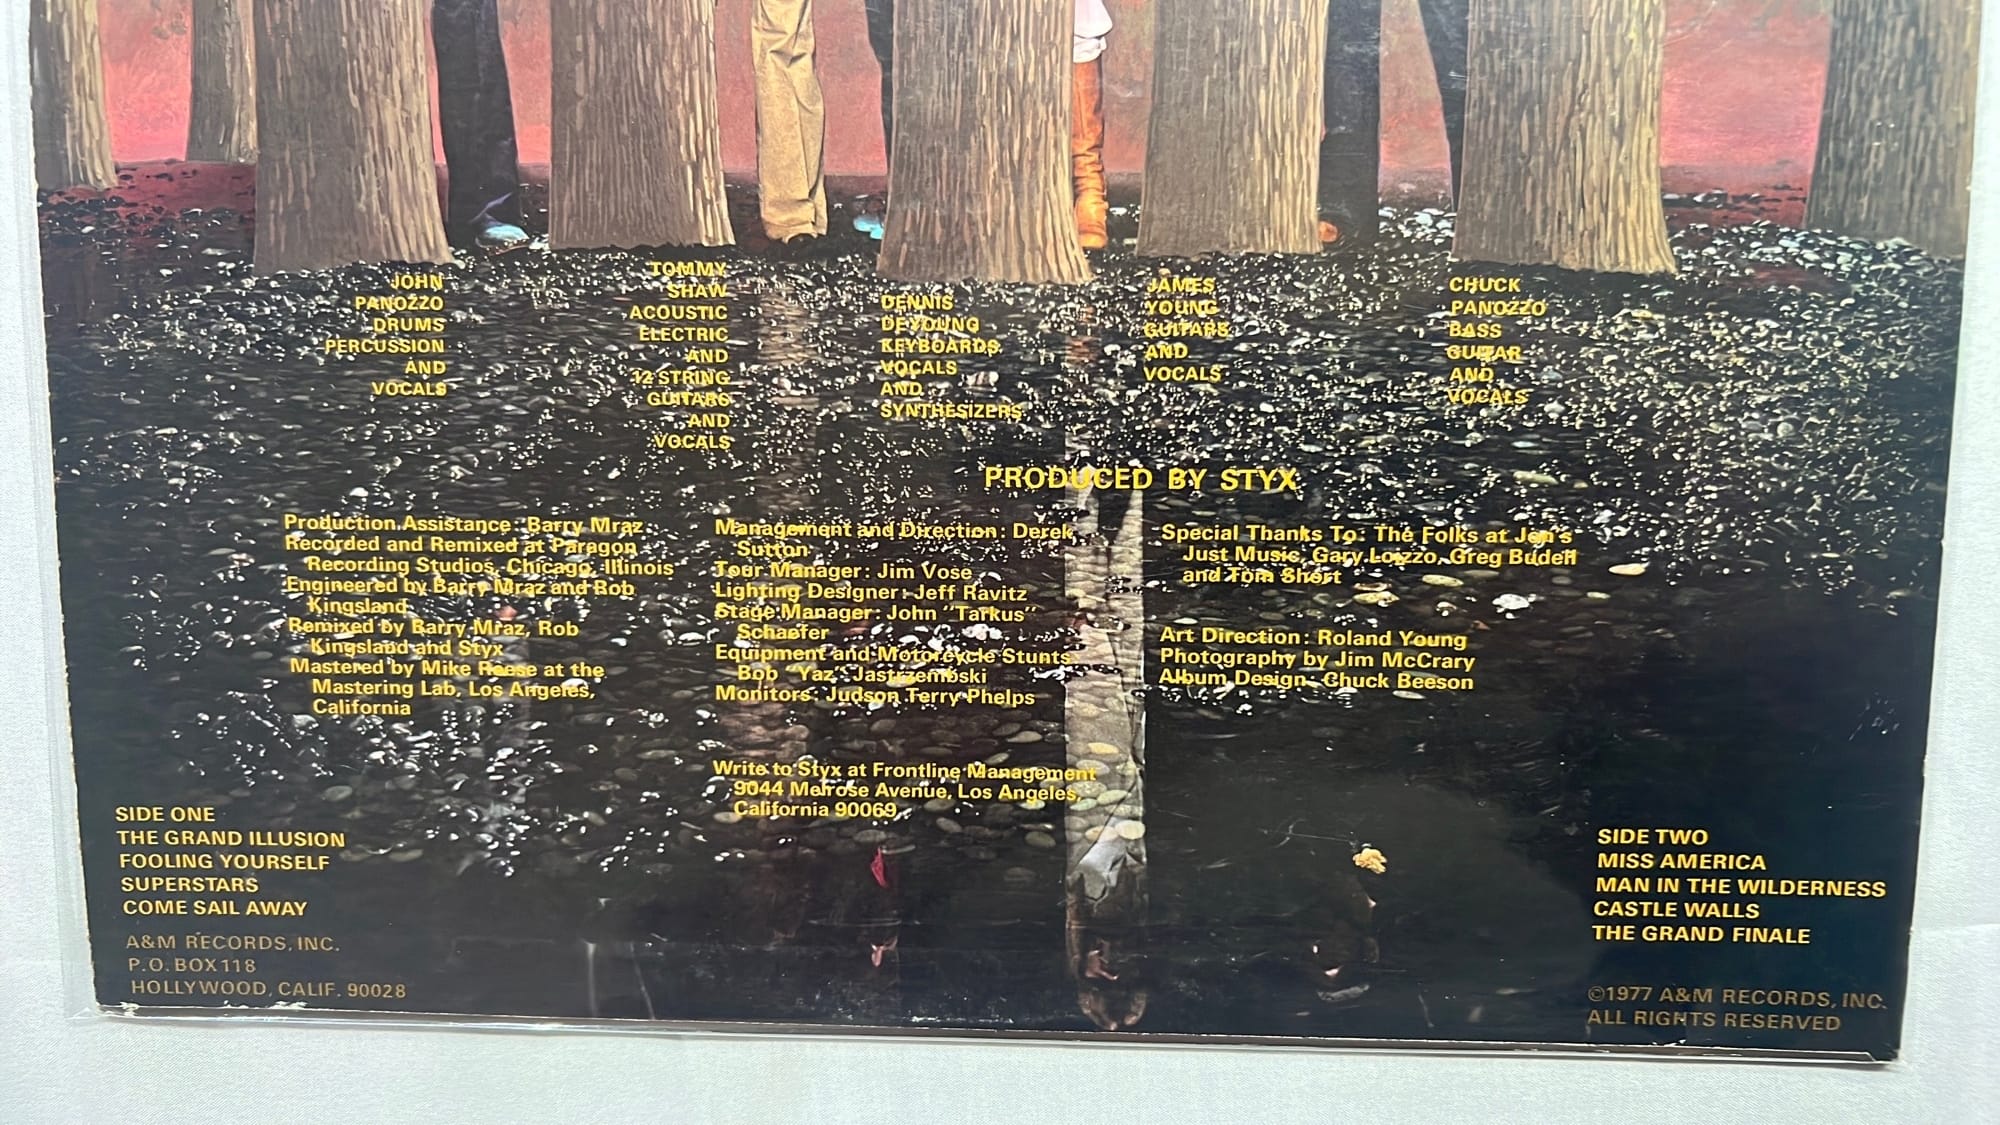 JOHN
PANOZZO
DRUMS
PERCUSSION
AND
VOCALS
TOMMY
SHAW
ACOUSTIC
ELECTRIC
AND
12 STRING
GUITARS
AND
VOCALS
DENNIS
DEYOUNG
KEYBOARDS
VOCALS
AND
SYNTHESIZERS
JAMES
YOUNG
GUITARS
AND
VOCALS
CHUCK
PANOZZO
BASS
GUITAR
AND
VOCALS
PRODUCED BY STYX
Production Assistance: Barry Mraz
Recorded and Remixed at Paragon
Recording Studios, Chicago, Illinois
Engineered by Barry Mraz and Rob
Kingsland
Remixed by Barry Mraz, Rob
Kingsland and Styx
Mastered by Mike Reese at the
Mastering Lab, Los Angeles,
California
Management and Direction: Derek
Sutton
Tour Manager: Jim Vose
Lighting Designer: Jeff Ravitz
Stage Manager: John "Tarkus"
Schaefer
Equipment and Motorcycle Stunts
Bob "Yaz" Jastrzembski
Monitors: Judson Terry Phelps
Write to Styx at Frontline Management
9044 Melrose Avenue, Los Angeles,
California 90069
Special Thanks To: The Folks at Jen's
Just Music, Gary Loizzo, Greg Budell
and Tom Short
Art Direction: Roland Young
Photography by Jim McCrary
Album Design: Chuck Beeson
SIDE ONE
THE GRAND ILLUSION
FOOLING YOURSELF
SUPERSTARS
COME SAIL AWAY
A&M RECORDS, INC.
P.O. BOX 118
HOLLYWOOD, CALIF. 90028
SIDE TWO
MISS AMERICA
MAN IN THE WILDERNESS
CASTLE WALLS
THE GRAND FINALE
©1977 A&M RECORDS, INC.
ALL RIGHTS RESERVED